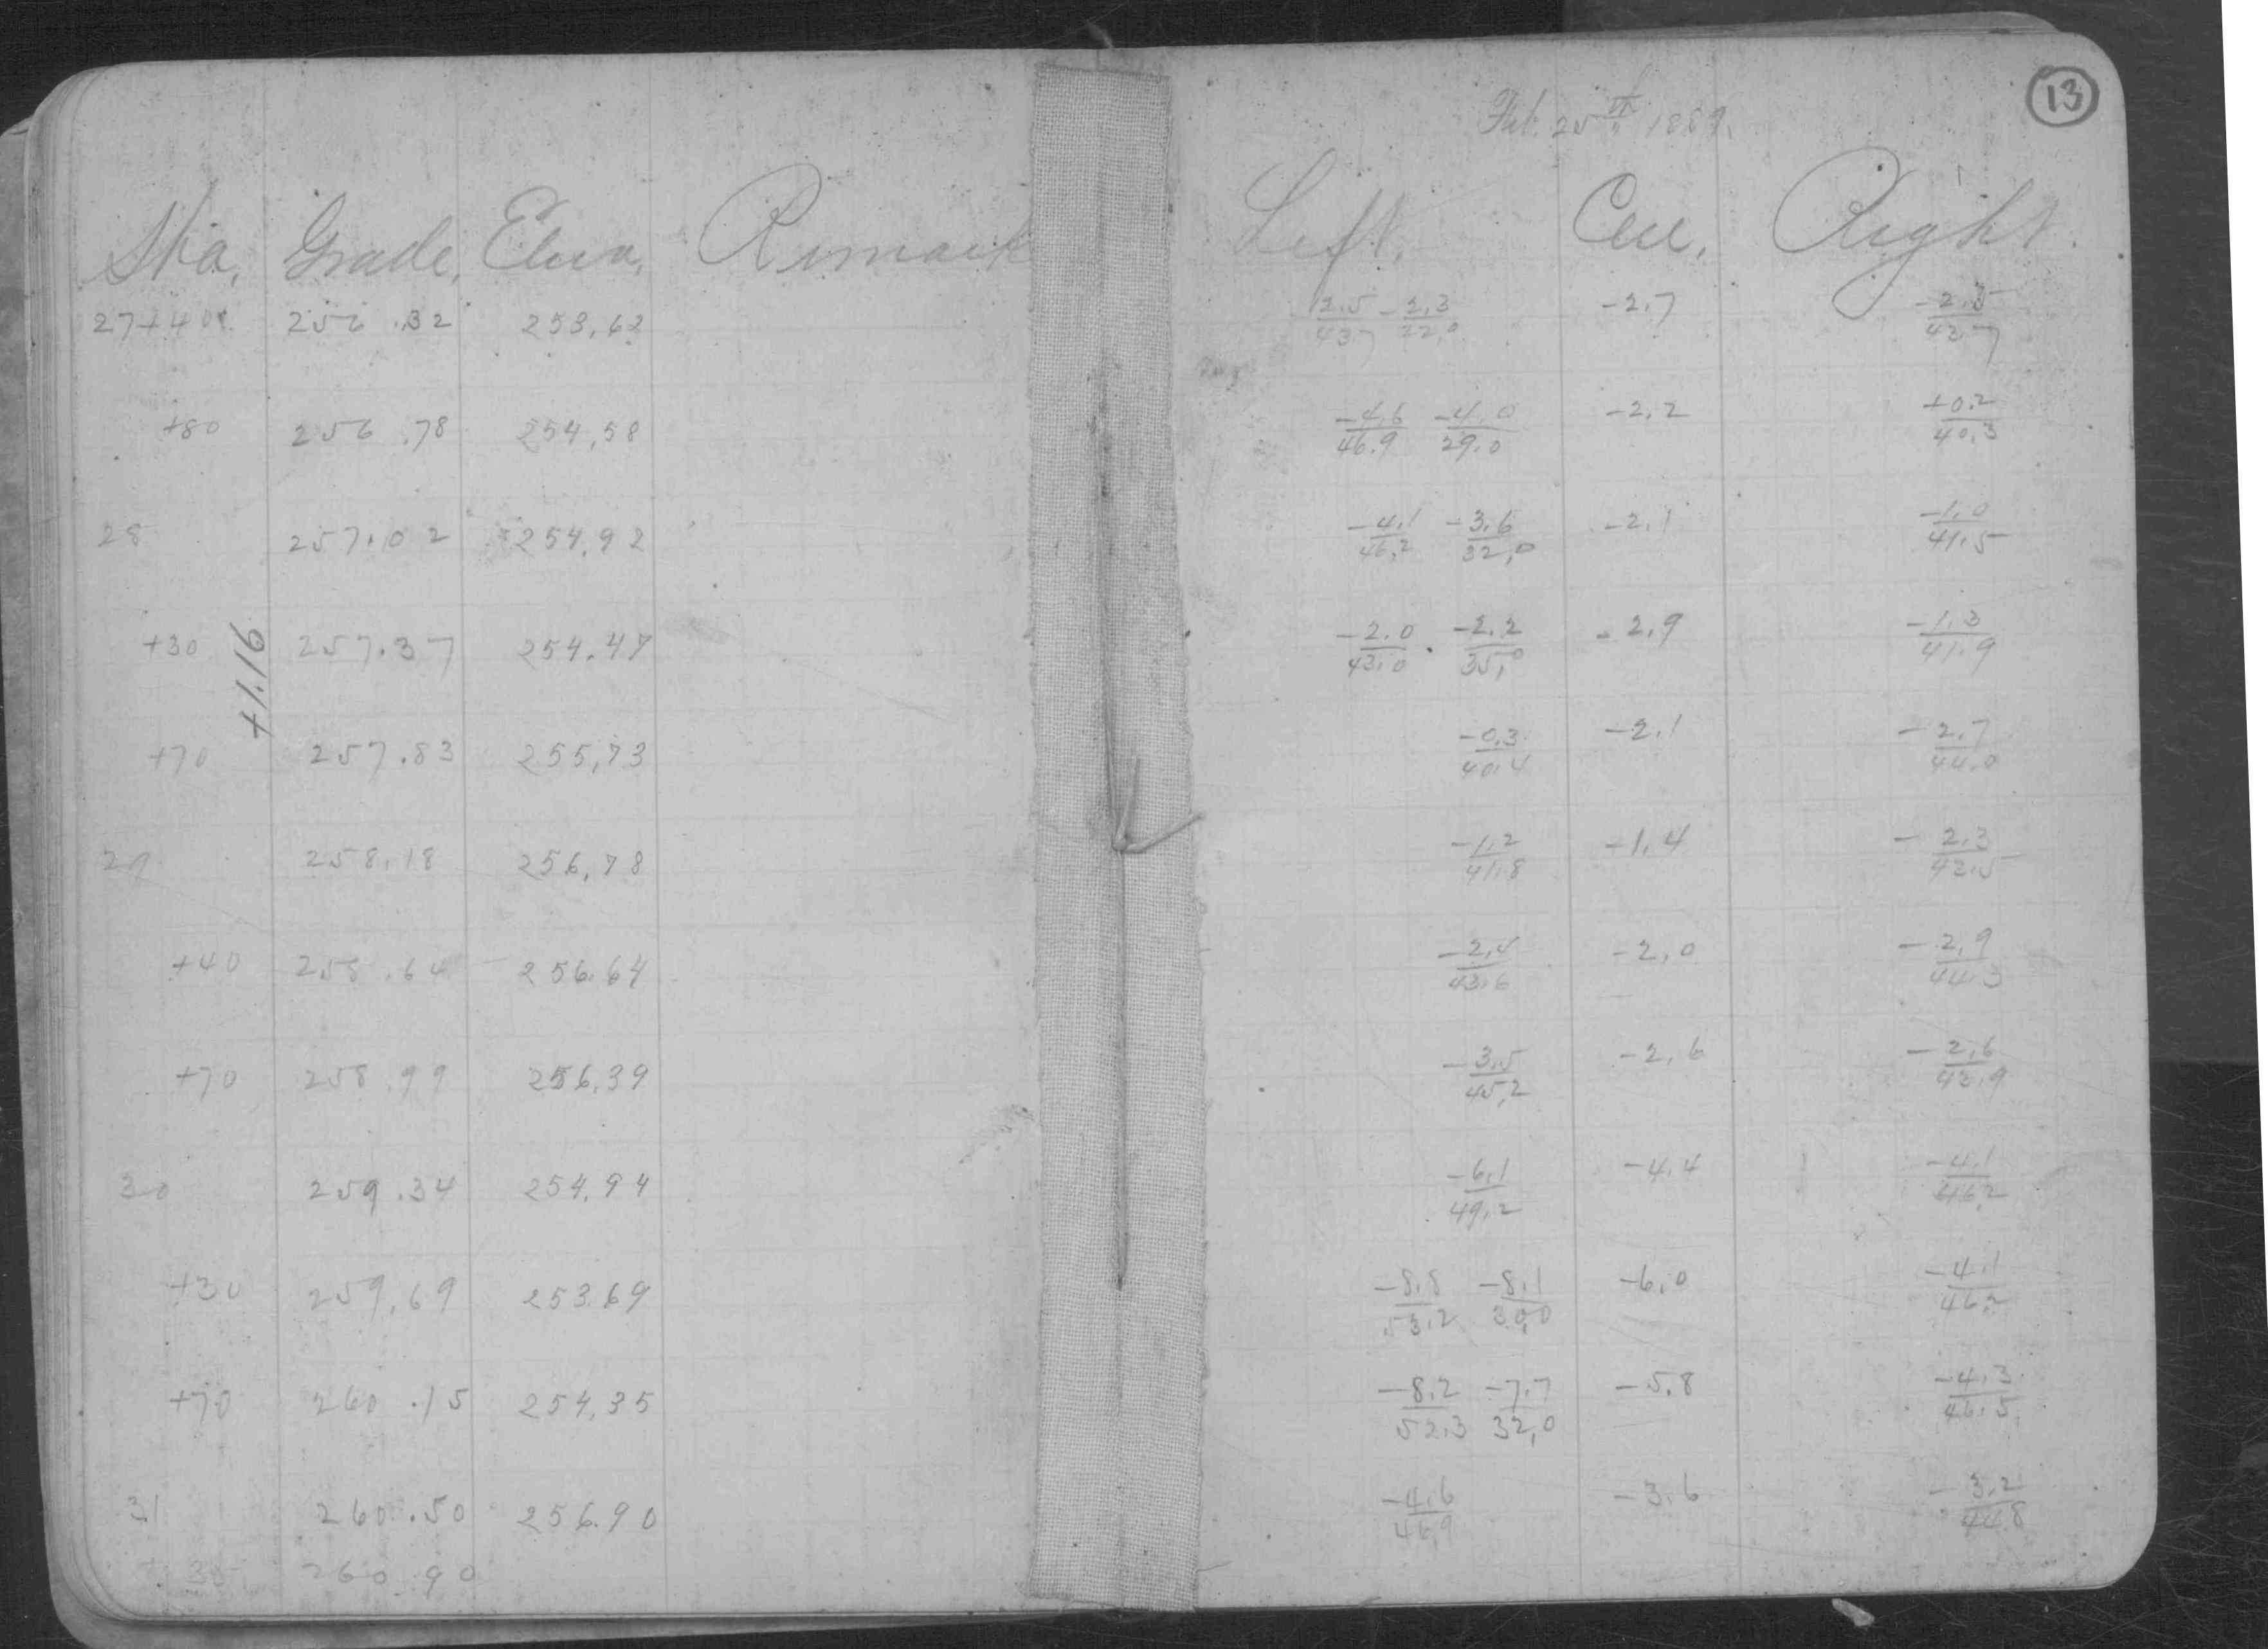 13
Feb. 25th 1889.
Sta. Grade, Eleva. Remark Left. Cen. Right.
27+40 256.32 253.62 2.5/43.7 -2.3/22.0 -2.7 -2.5/42.7
+80 256.78 254.58 -4.6/46.9 -4.0/29.0 -2.2 +0.2/40.3
28 257.02 254.92 -4.1/46.2 -3.6/32.0 -2.1 -1.0/41.5
+30 257.37 254.47 -2.0/43.0 -2.2/35.0 -2.9 -1.3/41.9
+1.16
+70 257.83 255.73 -0.3/40.4 -2.1 -2.7/44.0
29 258.18 256.78 -1.2/41.8 -1.4 -2.3/42.5
+40 258.64 256.64 -2.4/43.6 -2.0 -2.9/44.3
+70 258.99 256.39 -3.5/45.2 -2.6 -2.6/42.9
30 259.34 254.94 -6.1/49.2 -4.4 -4.1/46.2
+30 259.69 253.69 -8.8/53.2 -8.1/30.0 -6.0 -4.1/46.2
+70 260.15 254.35 -8.2/52.3 -7.7/32.0 -5.8 -4.3/46.5
31 260.50 256.90 -4.6/46.9 -3.6 -3.2/44.8
260.90